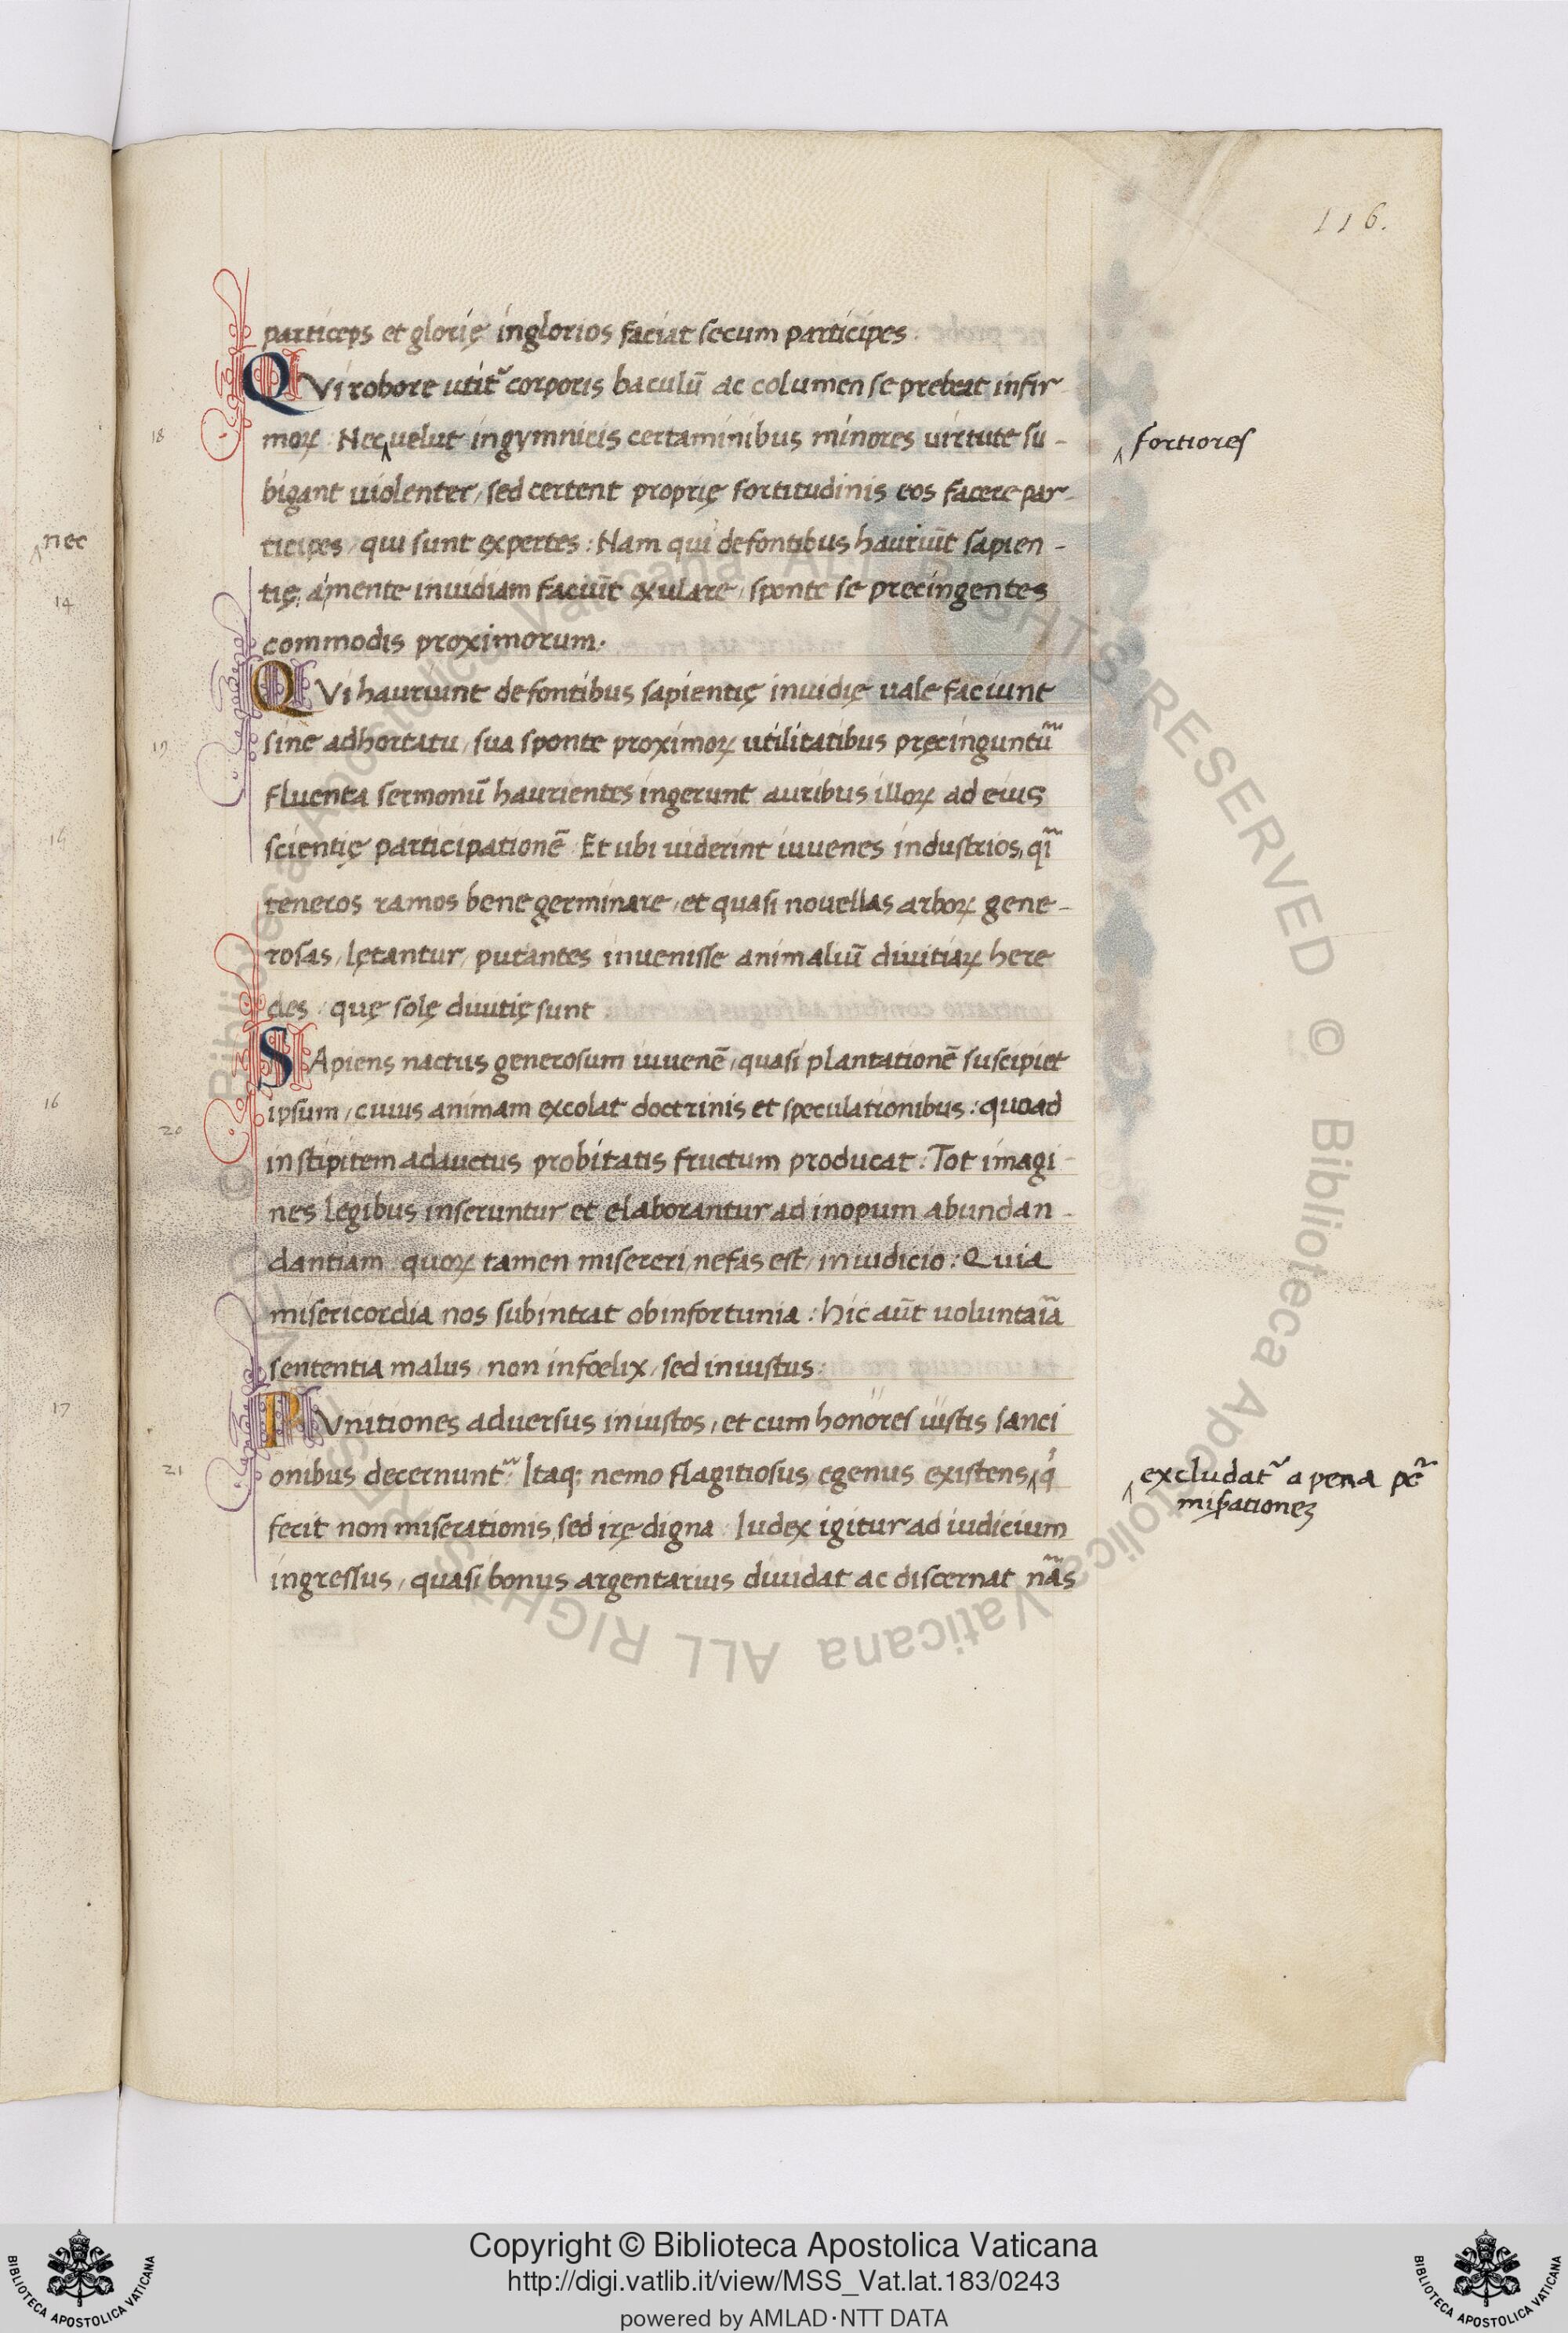 116.
particeps et glorię inglorios faciat secum participes.
QVi robore utit᷑ corporis baculū ac columen se prebeat infir
moꝝ. Nec ‸ uelut in gymnicis certaminibus minores uirtute su-
‸ fortiores
18
bigant uiolenter, sed certent proprię fortitudinis eos facere par-
ticipes, qui sunt expertes: Nam qui de fontibus hauriūt sapien-
tię, amente inuidiam faciūt exulare, sponte se precingentes
commodis proximorum.
QVi hauriunt de fontibus sapientię inuidię uale faciunt
sine adhortatu, sua sponte proximoꝝ utilitatibus pręcinguntũ
19
Fluenta sermonū haurientes ingerunt auribus illoꝝ ad eius
scientię participationē. Et ubi uiderint iuuenes industrios, qĩ
teneros ramos bene germinare, et quasi nouellas arboꝝ gene-
rosas, lętantur, putantes inuenisse animaliū diuitiaꝝ here
des, quę solę diuitię sunt.
SApiens nactus generosum iuuenē, quasi plantationē suscipiet
ipsum, cuius animam excolat doctrinis et speculationibus: quoad
20
in stipitem adauctus probitatis fructum producat: Tot imagi-
nes legibus inseruntur et elaborantur ad inopum abundan-
dantiam: quoꝝ tamen misereri, nefas est, in iudicio: Quia
misericordia nos subintrat ob infortunia: hic aūt uoluntaĩa
sententia malus, non infœlix, sed iniustus:
PVnitiones aduersus iniustos, et cum honores iustis sanci
onibus decernunt᷑: Itaq; nemo flagitiosus egenus existens, ‸ q̇
21
‸ excludat᷑ a pena pe᷑
misꝑationeʒ
fecit non miserationis, sed irę digna. Iudex igitur ad iudicium
ingressus, quasi bonus argentarius diuidat ac discernat nãs
‸ nec
14
15
16
17
Copyright © Biblioteca Apostolica Vaticana
http://digi.vatlib.it/view/MSS_Vat.lat.183/0243
powered by AMLAD·NTT DATA
BIBLIOTECA APOSTOLICA VATICANA
BIBLIOTECA APOSTOLICA VATICANA
© Biblioteca Apostolica Vaticana ALL RIGHTS RESERVED © Biblioteca Apostolica Vaticana ALL RIGHTS RESERVED